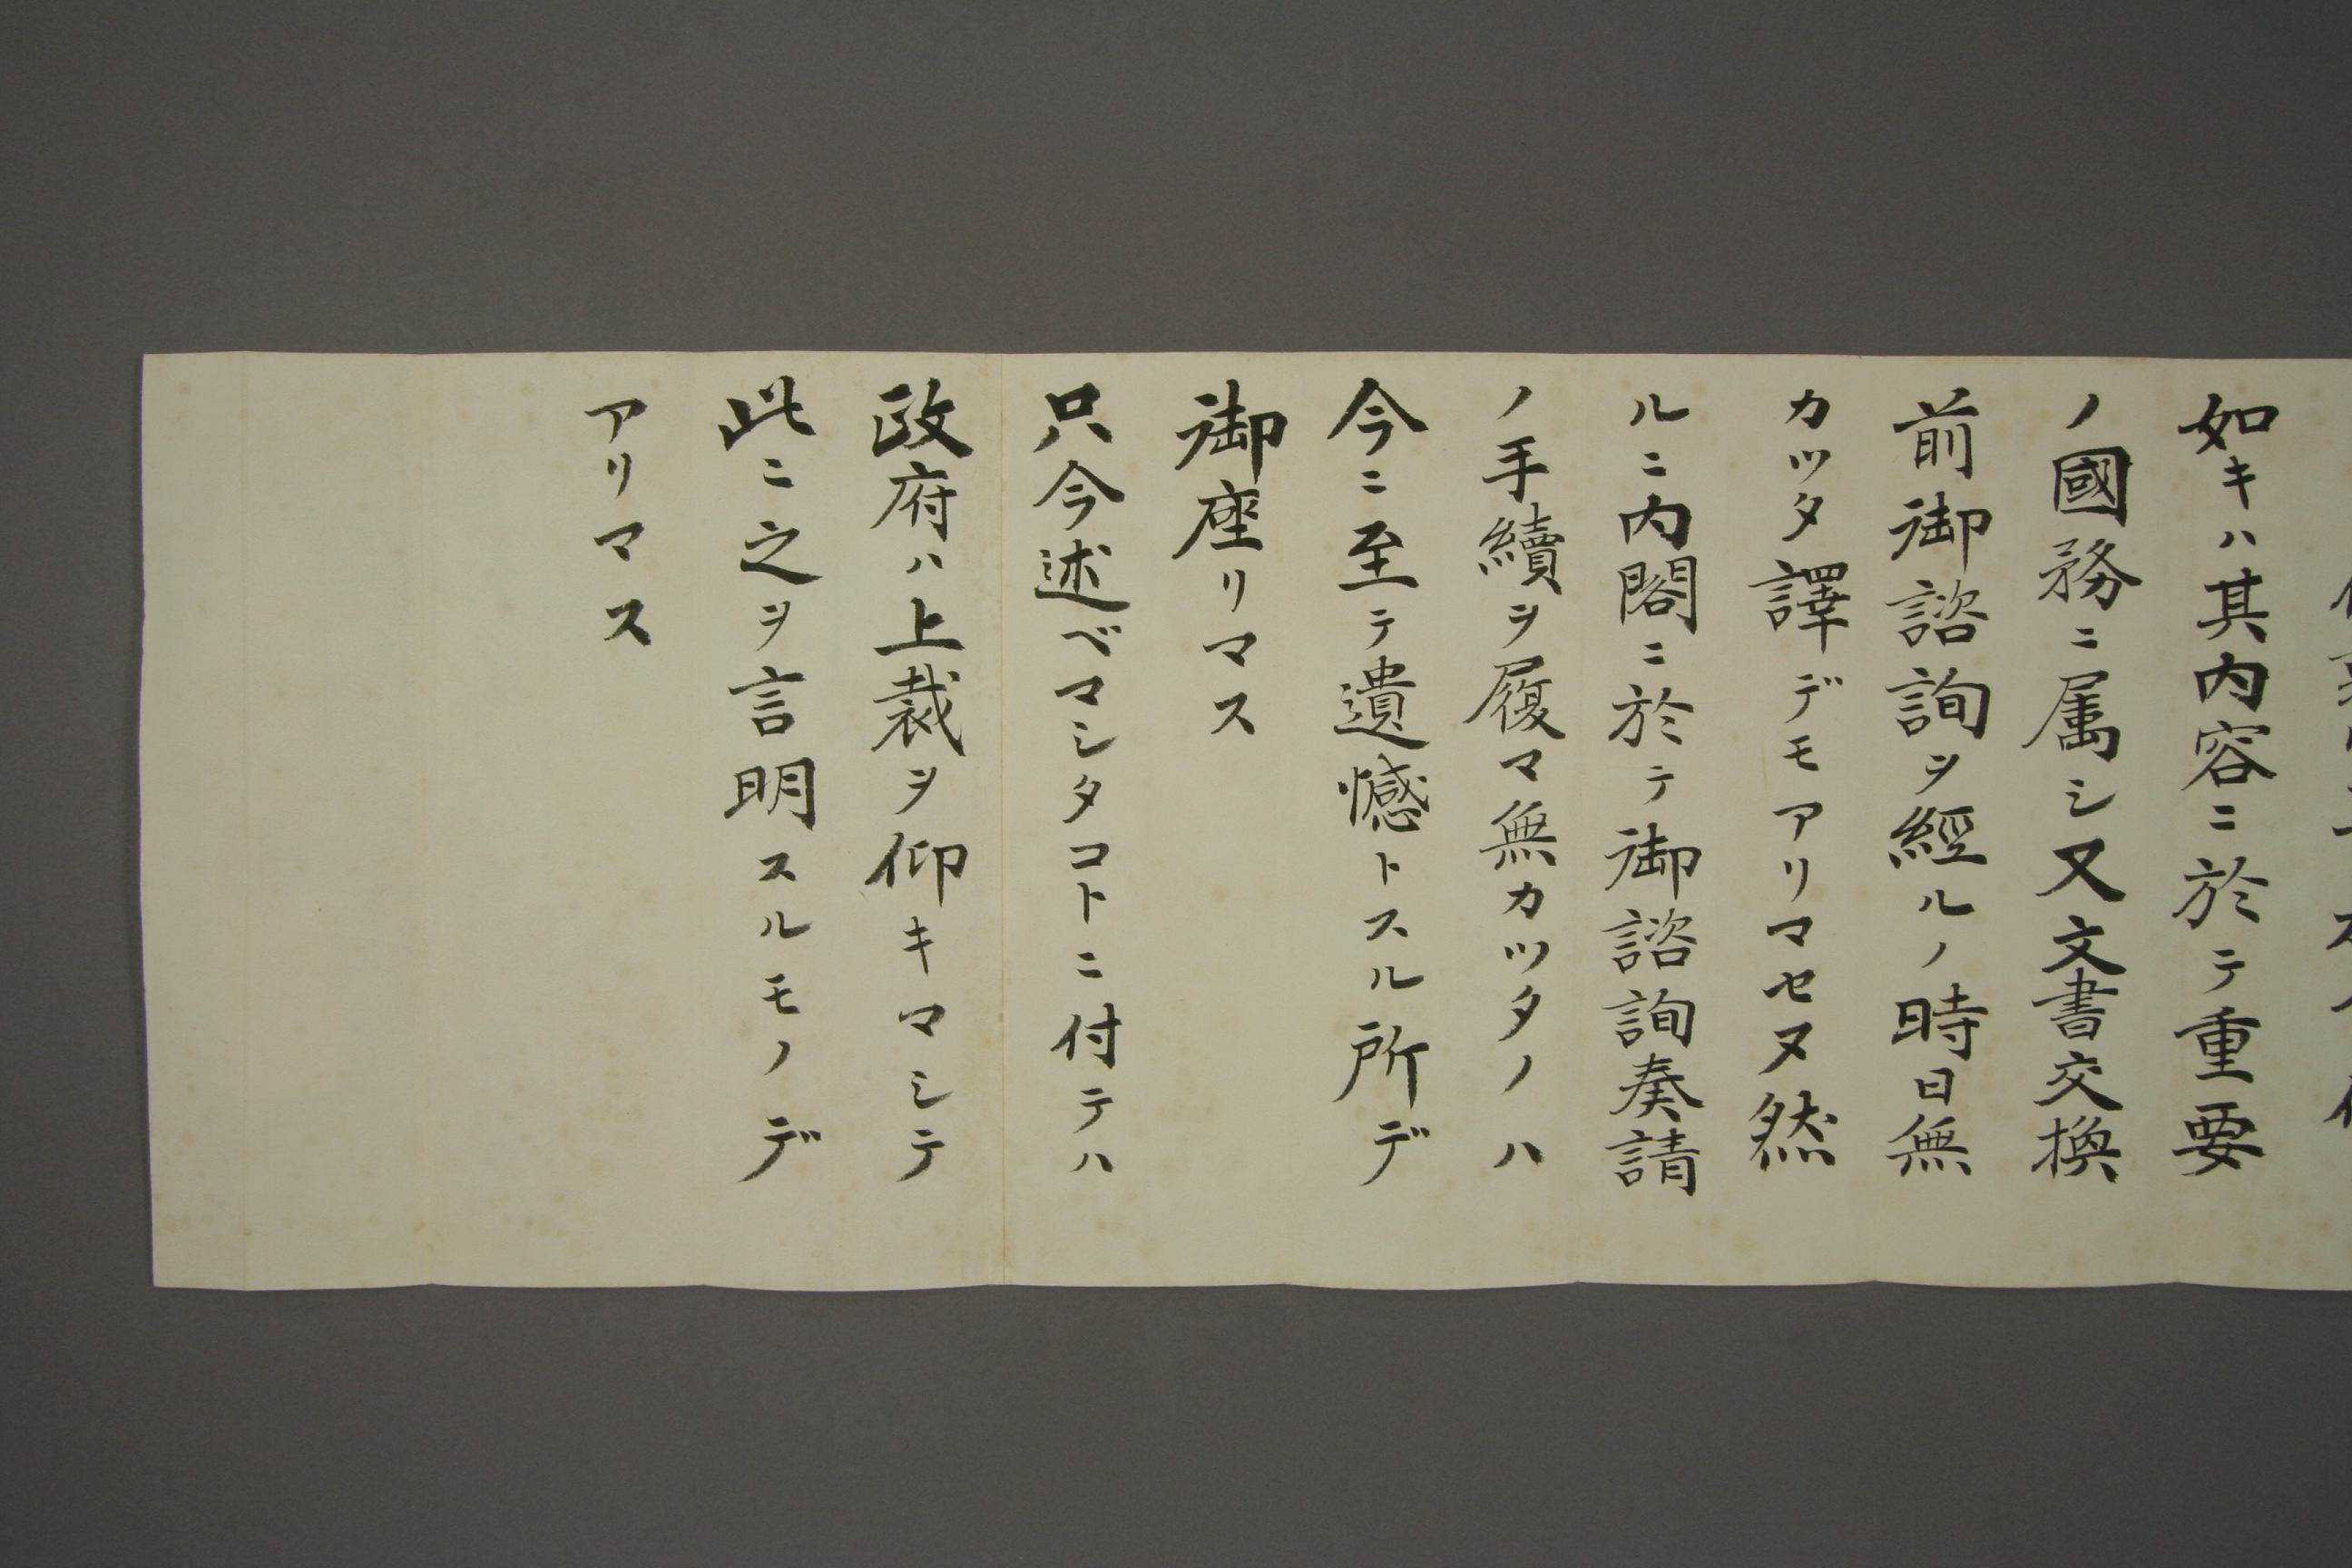 如キハ其内容ニ於テ重要
ノ國務ニ属シ又文書交換
前御諮詢ヲ經ルノ時日無
カツタ譯デモアリマセヌ然
ルニ内閣ニ於テ御諮詢奏請
ノ手續ヲ履マ無カツタノハ
今ニ至テ遺憾トスル所デ
御座リマス
只今述ベマシタコトニ付テハ
政府ハ上裁ヲ仰キマシテ
此ニ之ヲ言明スルモノデ
アリマス